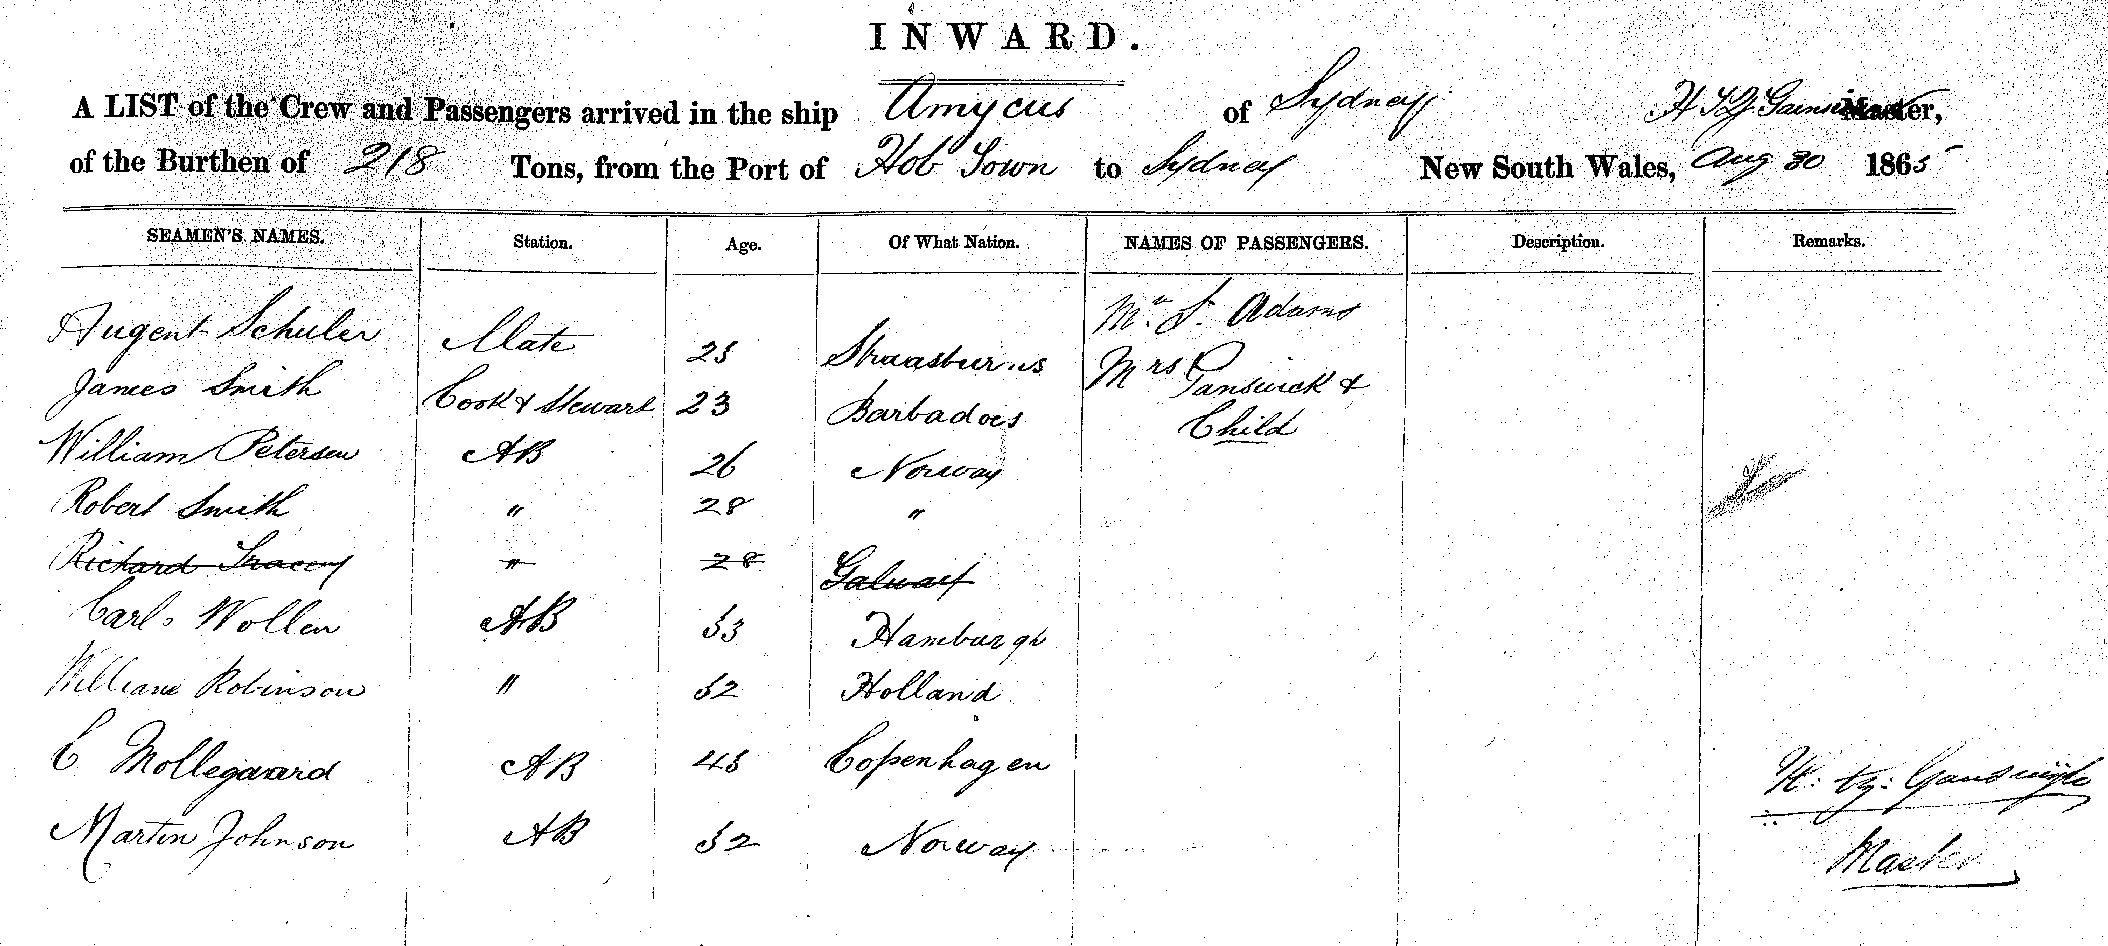 INWARD.
A LIST of the Crew and Passengers arrived in the ship Amycus of Sydney Master,
of the Burthen of 218 Tons, from the Port of Hob Town to Sydney New South Wales, Aug 30 1865
SEAMEN'S NAMES. Station. Age. Of What Nation. NAMES OF PASSENGERS. Description. Remarks.
Mr J. Adams
Augent Schuler Mate 25
James Smith Cook & Stewart 23 Barbadoes Mrs Ganswick &
Child
William Petersen AB 26 Norway
Robert Smith " 28 "
Richard Tracey " 28 Galway
Carl Wollen AB 33 Hamburgh
William Robinson " 32 Holland
C Mollegaard AB 45 Copenhagen
Martin Johnson AB 32 Norway
Master